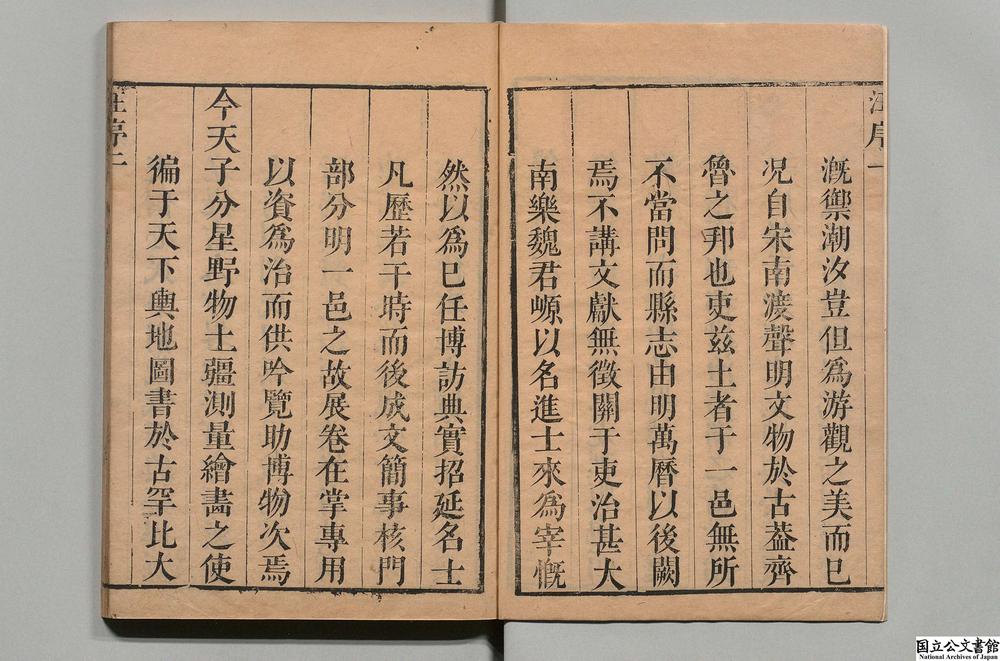 汪序一
漑禦潮汐豈但爲游觀之美而已
况自宋南渡聲明文物於古葢齊
魯之邦也吏兹土者于一邑無所
不當問而縣志由明萬曆以後闕
焉不講文獻無徵關于吏治甚大
南樂魏君㟲以名進士來爲宰慨
然以爲已任博訪典實招延名士
凡歷若干時而後成文簡事核門
部分明一邑之故展卷在掌專用
以資爲治而供吟覽助博物次焉
今天子分星野物土疆測量繪畵之使
徧于天下輿地圖書於古罕比大
汪序二
国立公文書館
National Archives of Japan